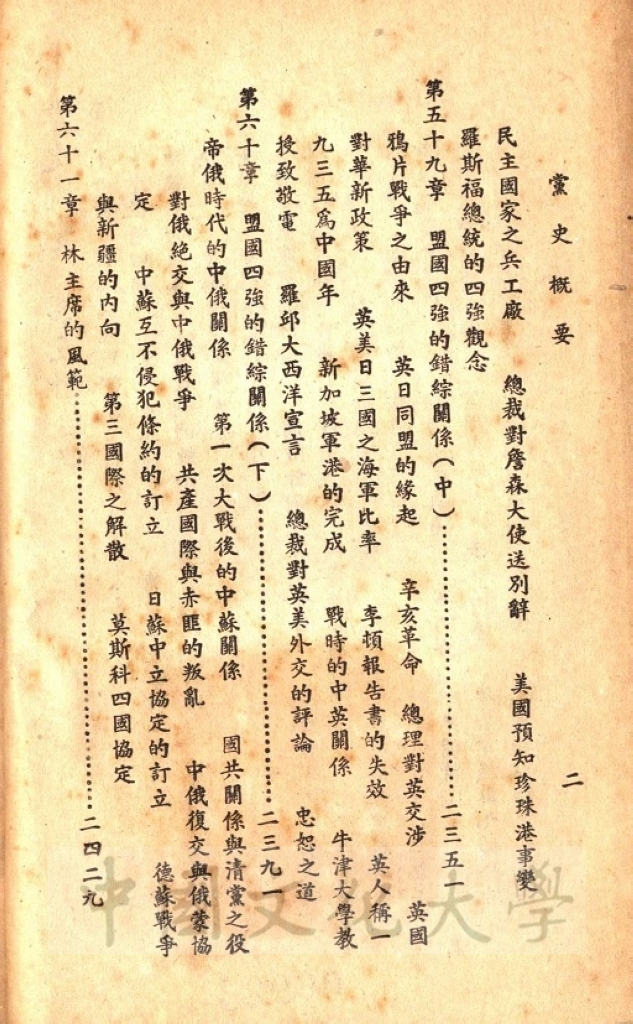 黨史概要
二
民主國家之兵工廠　總裁對詹森大使送別辭　美國預知珍珠港事變
羅斯福總統的四強觀念
第五十九章　盟國四強的錯綜關係（中）……………二三五一
鴉片戰爭之由來　英日同盟的緣起　辛亥革命　總理對英交涉　英國
對華新政策　英美日三國之海軍比率　李頓報告書的失效　英人稱一
九三五為中國年　新加坡軍港的完成　戰時的中英關係　牛津大學教
授致敬電　羅邱大西洋宣言　總裁對英美外交的評論　忠恕之道
第六十章　盟國四強的錯綜關係（下）……………二三九一
帝俄時代的中俄關係　第一次大戰後的中蘇關係　國共關係與清黨之役
對俄絕交與中俄戰爭　共產國際與赤匪的叛亂　中俄復交與俄蒙協
定　中蘇互不侵犯條約的訂立　日蘇中立協定的訂立　德蘇戰爭
與新疆的內向　第三國際之解散　莫斯科四國協定
第六十一章　林主席的風範……………二四二九
中國文化大學